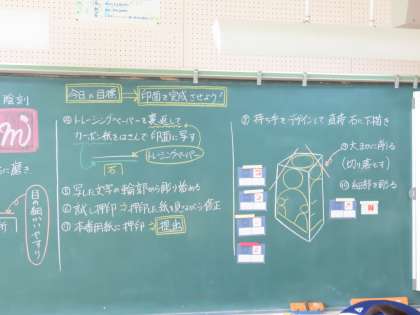 今日の目標
印面を完成させよう!
陰刻
m
に磨き
目の細かいやすり
④トレーシングペーパーを裏返して
カーボン紙をはさんで印面に写す
トレーシングペーパー
石
⑤写した文字の輪郭から彫り始める
⑥試し押印⇒押印した紙を見ながら修正
⑦本番用紙に押印⇒提出
⑧持ち手をデザインして直接石に下描き
⑨大まかに削る
(切り落とす)
⑩細部を削る